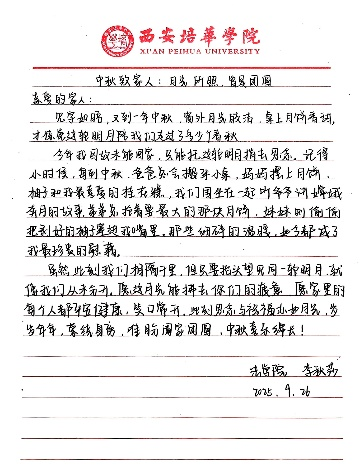 西安培華學院
XI'AN PEIHUA UNIVERSITY
中秋致家人：月亮所照，皆是团圆
亲爱的家人：
见字如晤，又到一年中秋，窗外月色皎洁，桌上月饼香甜，
才惊觉这轮明月陪我们走过了多少个春秋
今年我因故未能回家，只能托这轮明月捎去思念。记得
小时候，每到中秋，爸爸总会搬张小桌，妈妈摆上月饼、
柚子和我最喜爱的桂花糕，我们围坐在一起听爷爷讲嫦娥
奔月的故事，爸爸总指着要最大的那块月饼，妹妹则偷偷
把剥好的柚子塞进我嘴里，那些细碎的温暖，如今都成了
我最珍贵的慰藉。
虽然此刻我们相隔千里，但只要抬头望见同一轮明月，就
像我们从未分开。愿这月亮能拂去你们的疲惫，愿家里的
每个人都平安健康，笑口常开，此刻思念与祝福也如月光，岁
岁年年，萦绕身旁，惟盼阖家团圆，中秋喜乐绵长！
李秋莎
2025.9.26